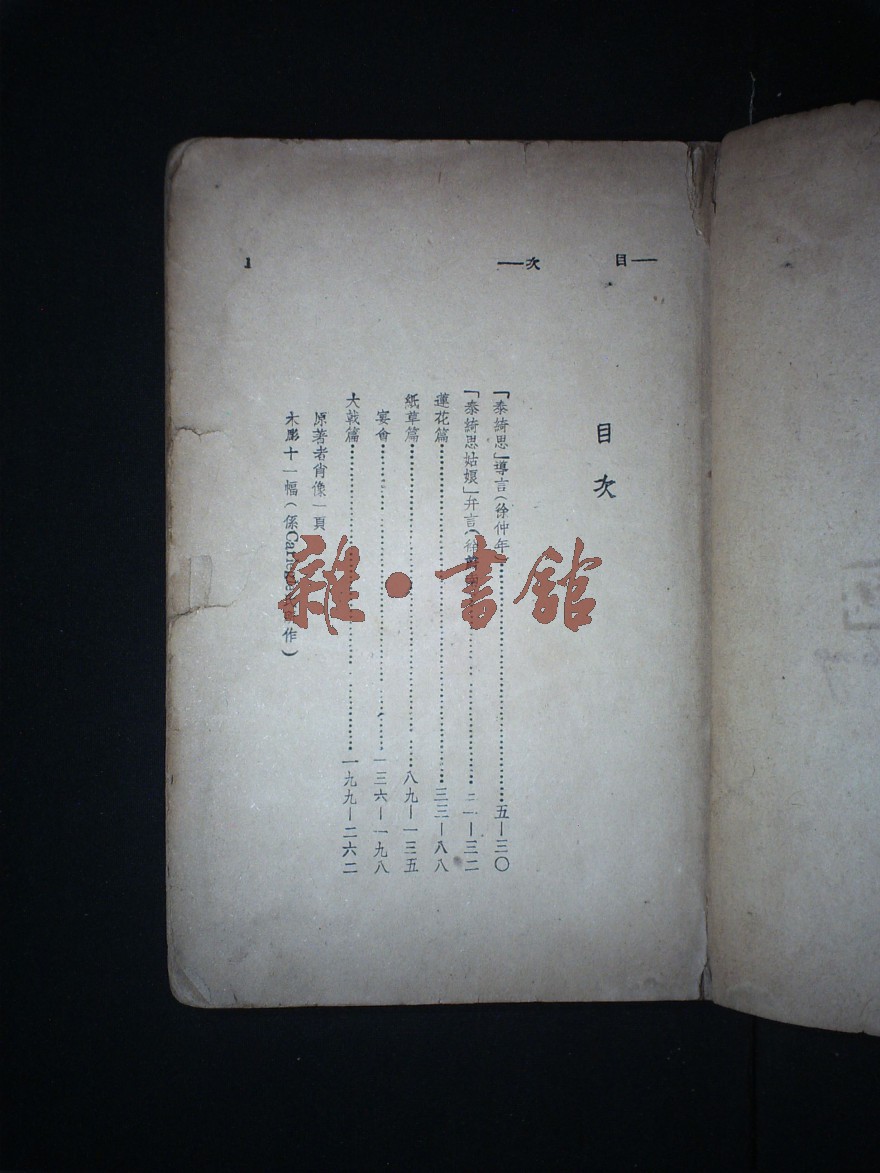 —目　次—
1
目次
「泰綺思」導言（徐仲年）……五—三〇
「泰綺思姑娘」弁言（徐蔚南）……三一—三二
蓮花篇……三三—八八
紙草篇……八九—一三五
宴會……一三六—一九八
大戟篇……一九九—二六二
原著者肖像一頁
木彫十一幅（係 作）
雜·書館